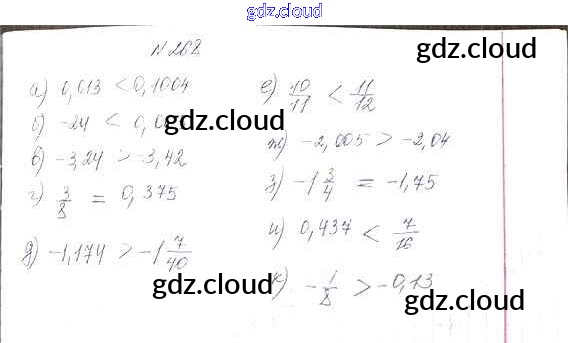 gdz.cloud
gdz.cloud
N 268
а) 0,013 < 0,1004
б) -24 < 0,0
gdz.cloud
в) -3,24 > -3,42
г) 3/8 = 0,375
д) -1,174 > -1 7/40
gdz.cloud
е) 10/11 < 11/12
ж) -2,005 > -2,04
gdz.cloud
з) -1 3/4 = -1,75
и) 0,437 < 7/16
к) -1/8 > -0,13
gdz.cloud
gdz.cloud